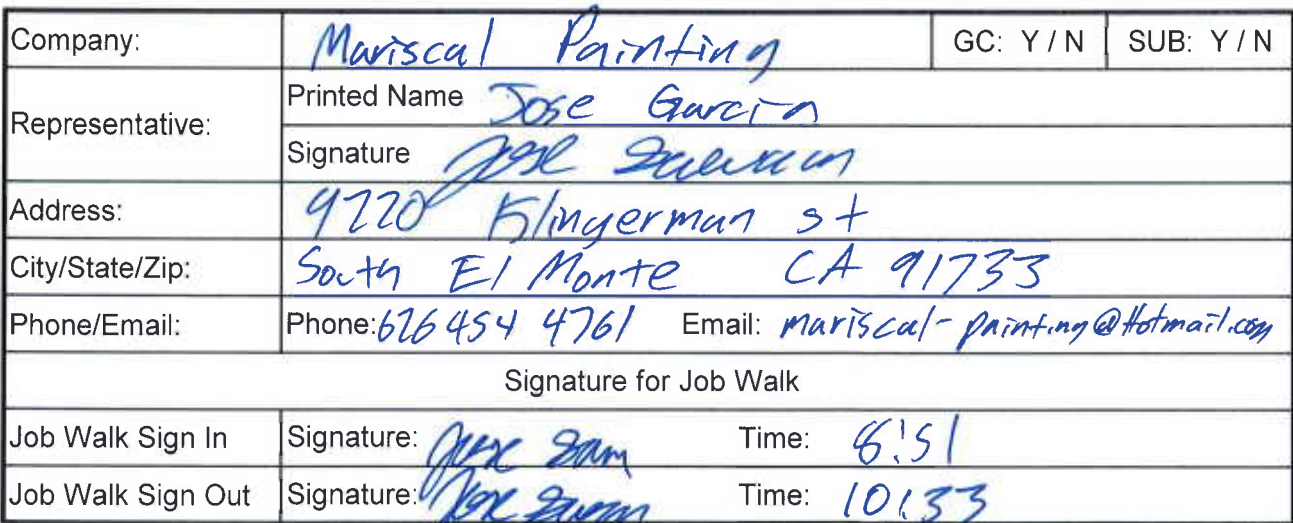 Company: Mariscal Painting GC: Y / N SUB: Y / N
Representative:
Printed Name Jose Garcia
Signature Jose
Address: 9220 Klingerman st
City/State/Zip: South El Monte CA 91733
Phone/Email: Phone: 626 454 4761 Email: mariscal-painting@Hotmail.com
Signature for Job Walk
Job Walk Sign In Signature: Jose Time: 8:51
Job Walk Sign Out Signature: Jose Time: 10:33